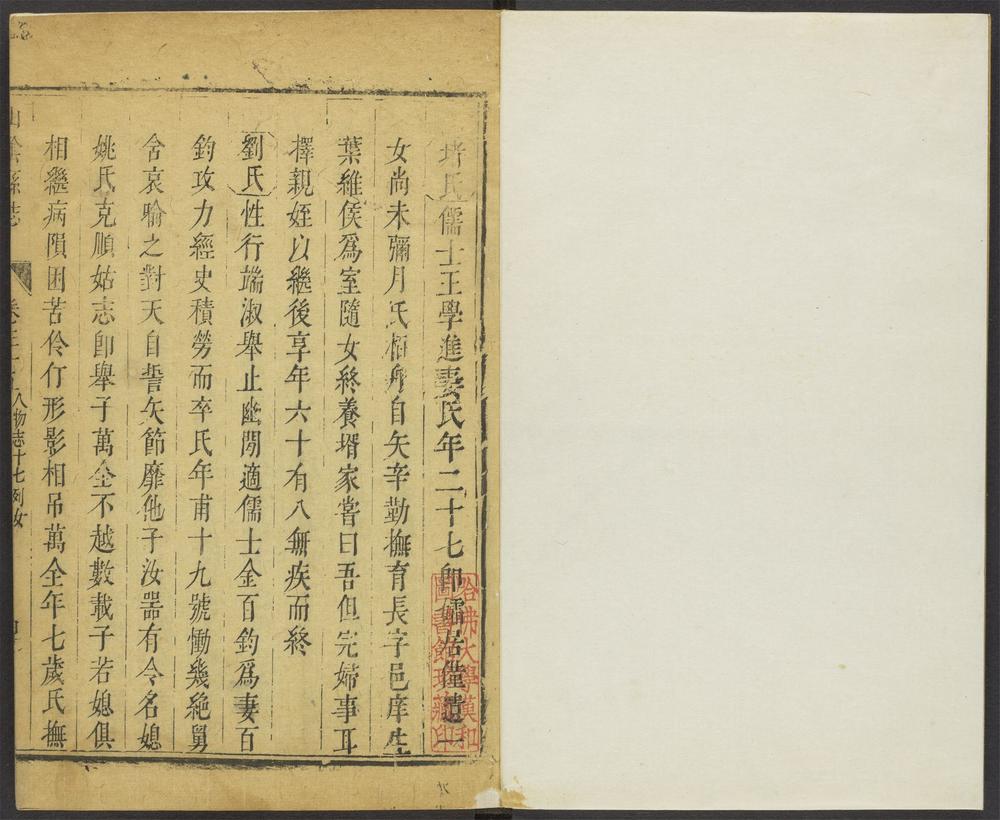 堵氏儒士王學進妻氏年二十七卽孀居僅遺一
女尚未彌月氏栢舟自矢辛勤撫育長字邑庠生
葉維侯爲室隨女終養壻家嘗曰吾但完婦事耳
擇親姪以繼後享年六十有八無疾而終
劉氏性行端淑舉止幽閒適儒士金百鈞爲妻百
鈞攻力經史積勞而卒氏年甫十九號慟幾絶舅
舍哀喻之對天自誓矢節靡他子汝噐有令名媳
姚氏克順姑志卽舉子萬全不越數載子若媳俱
相繼病隕困苦伶仃形影相吊萬全年七歲氏撫
山陰縣志 卷三十 人物志十七列女
哈佛大學漢和
圖書館珍藏印